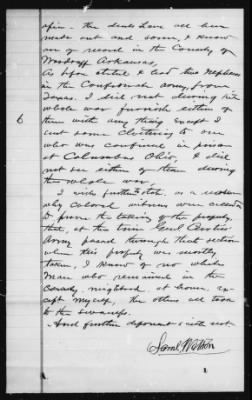 after - the deeds have all been
made out and some, I know
are of record in the County of
Woodruff Arkansas,
As before stated I had two Nephews
in the Confederate army, from
Texas. I did not during the
whole war furnish either of
them with any thing except I
6
sent some clothing to one
who was confined in prison
at Columbus Ohio, & did
not see either of them during
the whole war
I will further state, as a reason
why colored witness were
to prove the taking of the property,
that, at the time Genl Curtis'
Army passed through that section
when this property was mostly
taken, I know of no white
man who remained in the
County neighborhood at home, ex-
cept myself, the others all took
to the swamps.
And further deponent saith not
Saml Watson